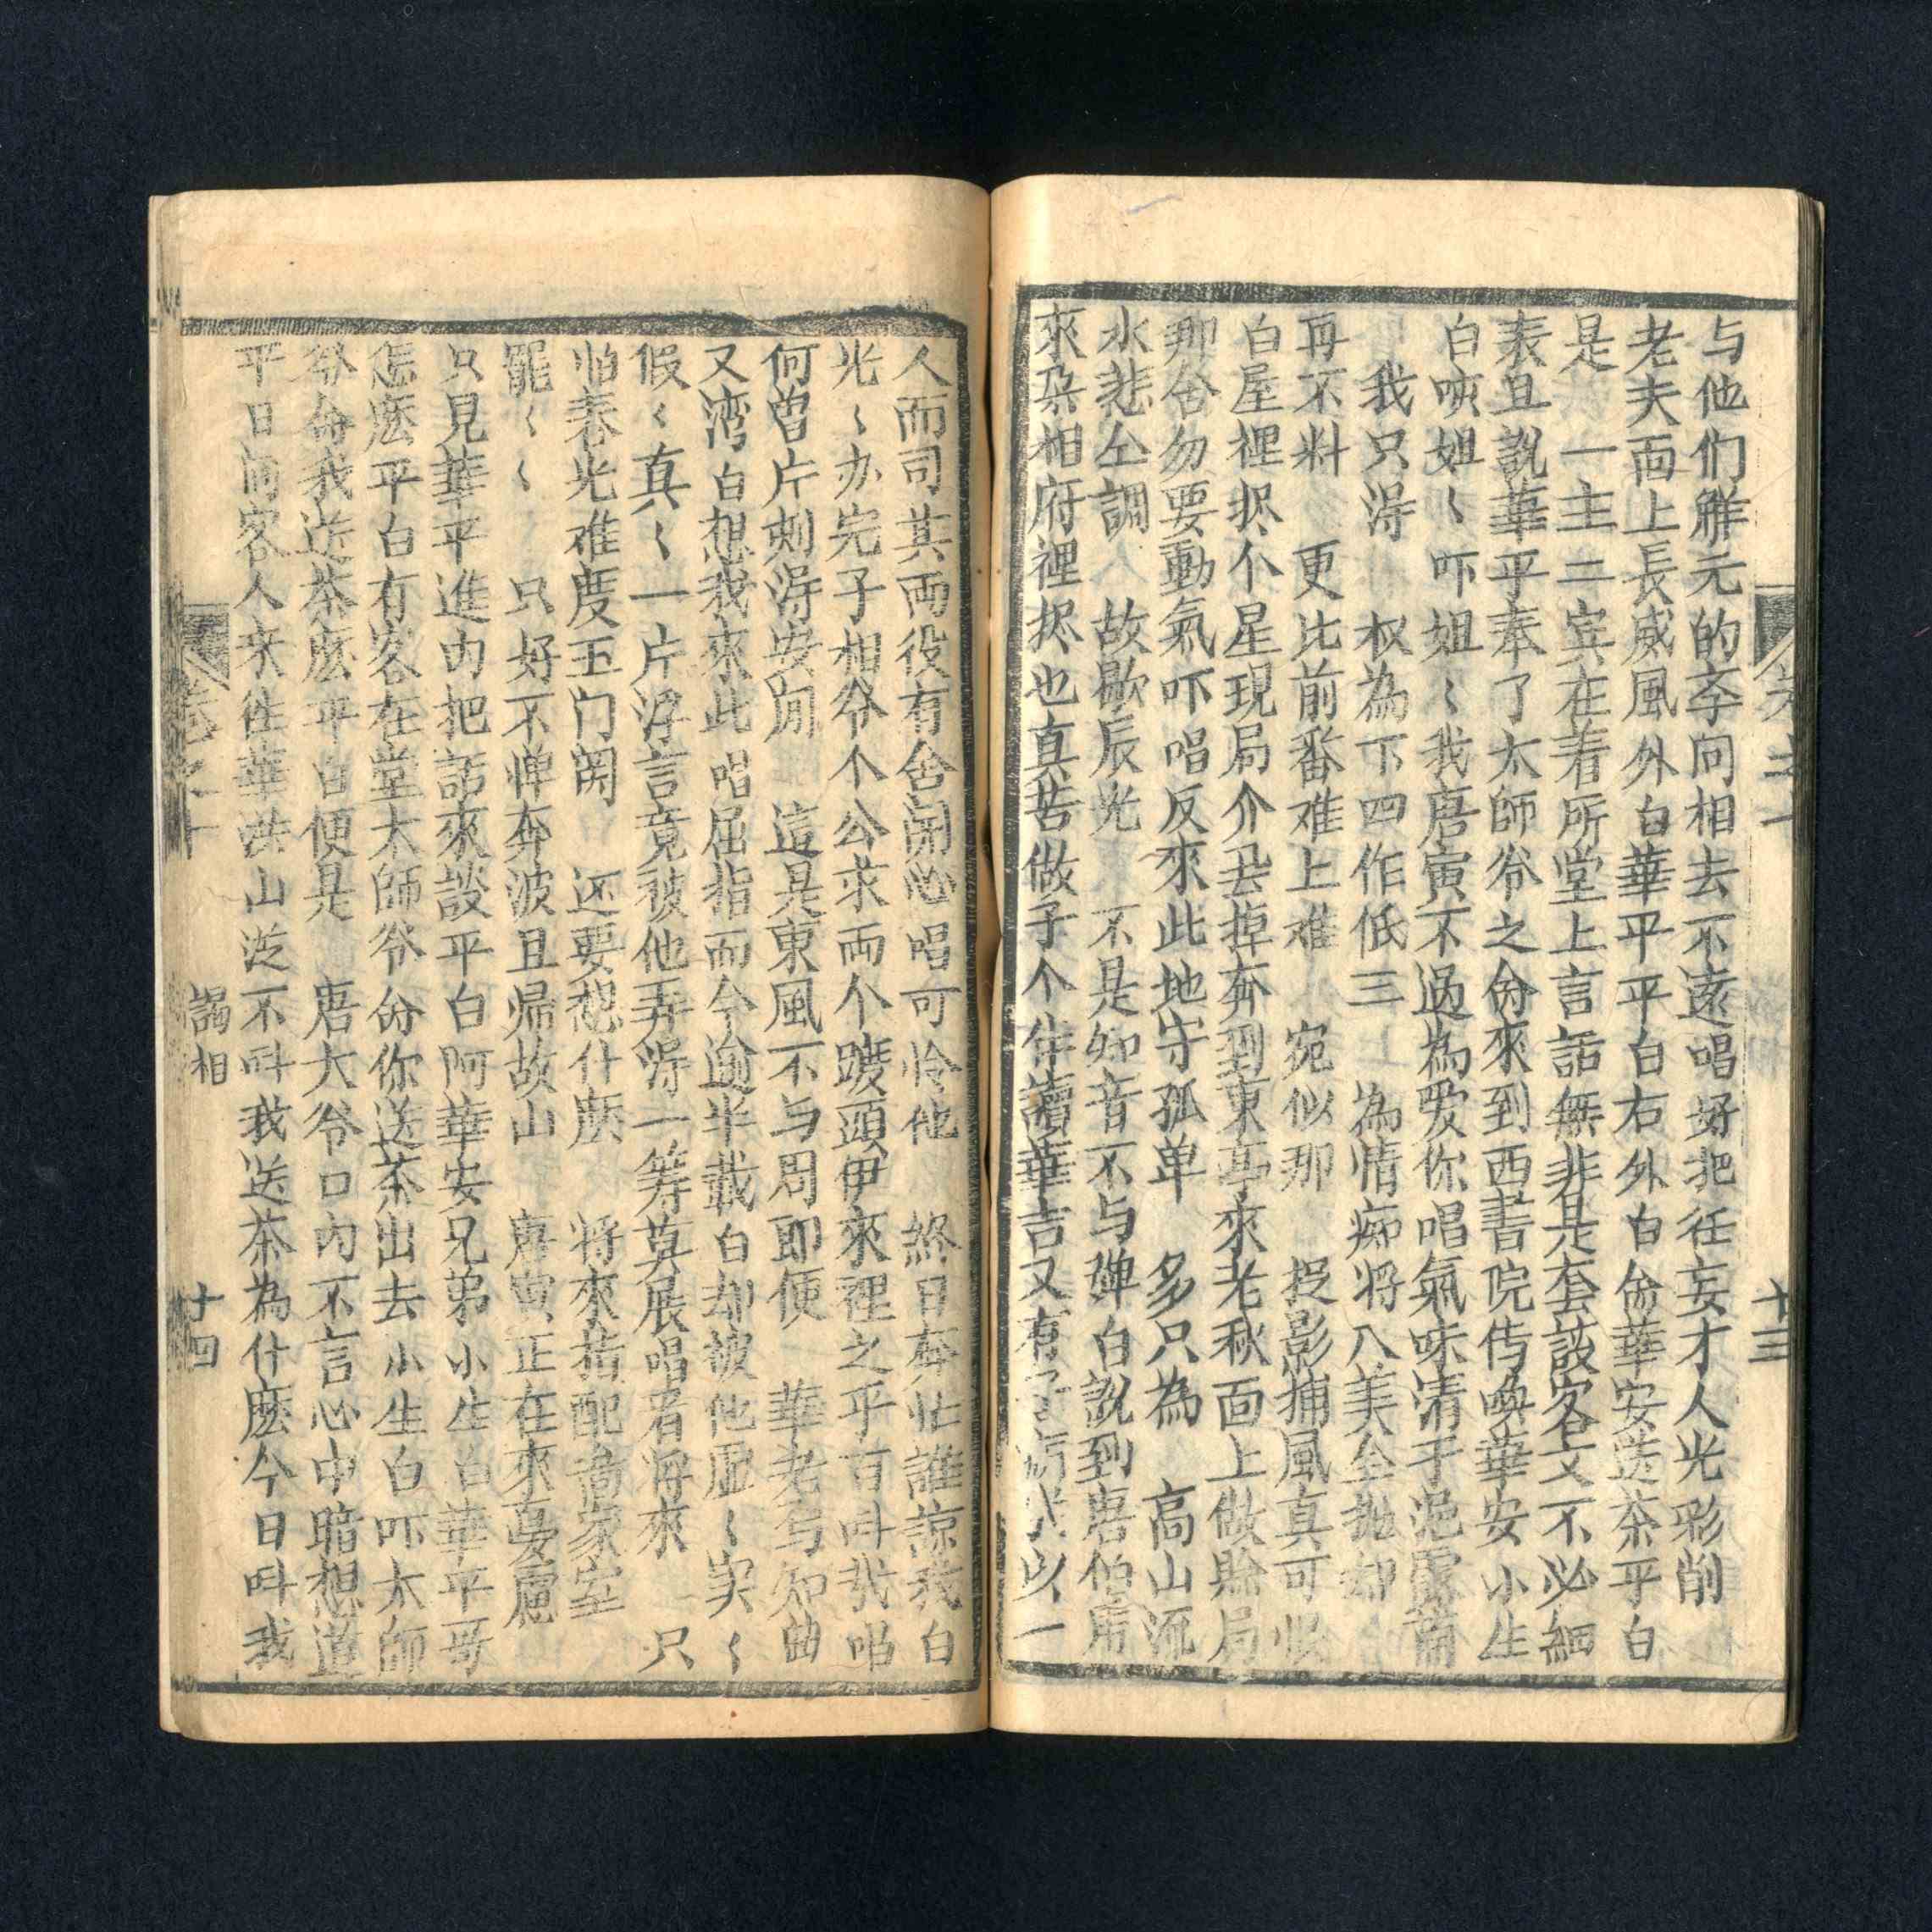 与他们觧元的斈问相去不遠唱好把任妄才人光彩削
老夫面上長威風外白華平平白右外白分華安送茶平白
是　一主二宾在着所堂上言話無非是套談客文不必細
表且說華平奉了太師爷之分來到西書院传喚華安小生
白咳姐〻吓姐〻我唐寅不過為愛你唱氣味清于浥露蘭
我只淂　权為下四作低三　為情痴将八美全抛却
再不料　更比前畨难上难　宛似那　捉影捕風真可恨
白屋裡捄个星現局介丟掉奔到東亭來老秋面上做賒局
那舍勿要動氣吓唱反來此地守孤单　多只為　高山流
水悲仝調　故歇辰光　不是知音不与弹白說到唐伯虎
來朶相府裡捄也真苦做子个伴讀華吉又有子病我以一
卷之十　十三
人而司其両役有舍闲心唱可怜他　終日奔忙誰諒我白
光〻办完子相爷个公求両个躞頭伊來裡之乎百呌我唱
何曽片刻淂安閒　這是東風不与周郎便　華老与知曲
又湾白想我來此唱屈指而今逾半載白却被他虚〻実〻
假〻真〻一片浮言竟被他弄淂一筹莫展唱看将來　只
怕春光难度玉门関　还要想什庅　将來指配爲家室
罷〻〻　只好不惮奔波且帰故山　唐寅正在來憂慮
只見華平進内把話來談平白阿華安兄弟小生白華平哥
怎庅平白有客在堂太師爷分你送茶出去小生白吓太師
爷分我送茶庅平白便是　唐大爷口内不言心中暗想道
平日间客人来往華洪山从不呌我送茶為什庅今日呌我
卷之十　謁相　十四